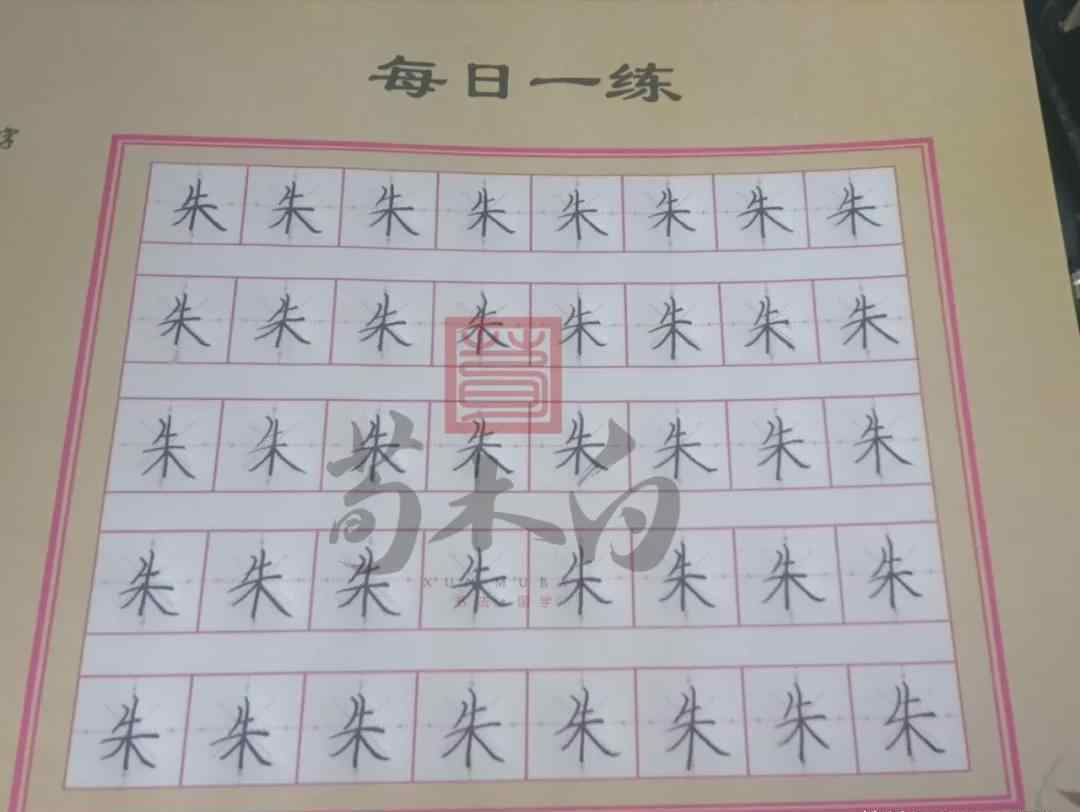 每日一练
字
朱朱朱朱朱朱朱朱
朱朱朱朱朱朱朱朱
朱朱朱朱朱朱朱朱
朱朱朱朱朱朱朱朱
朱朱朱朱朱朱朱朱
荀木白